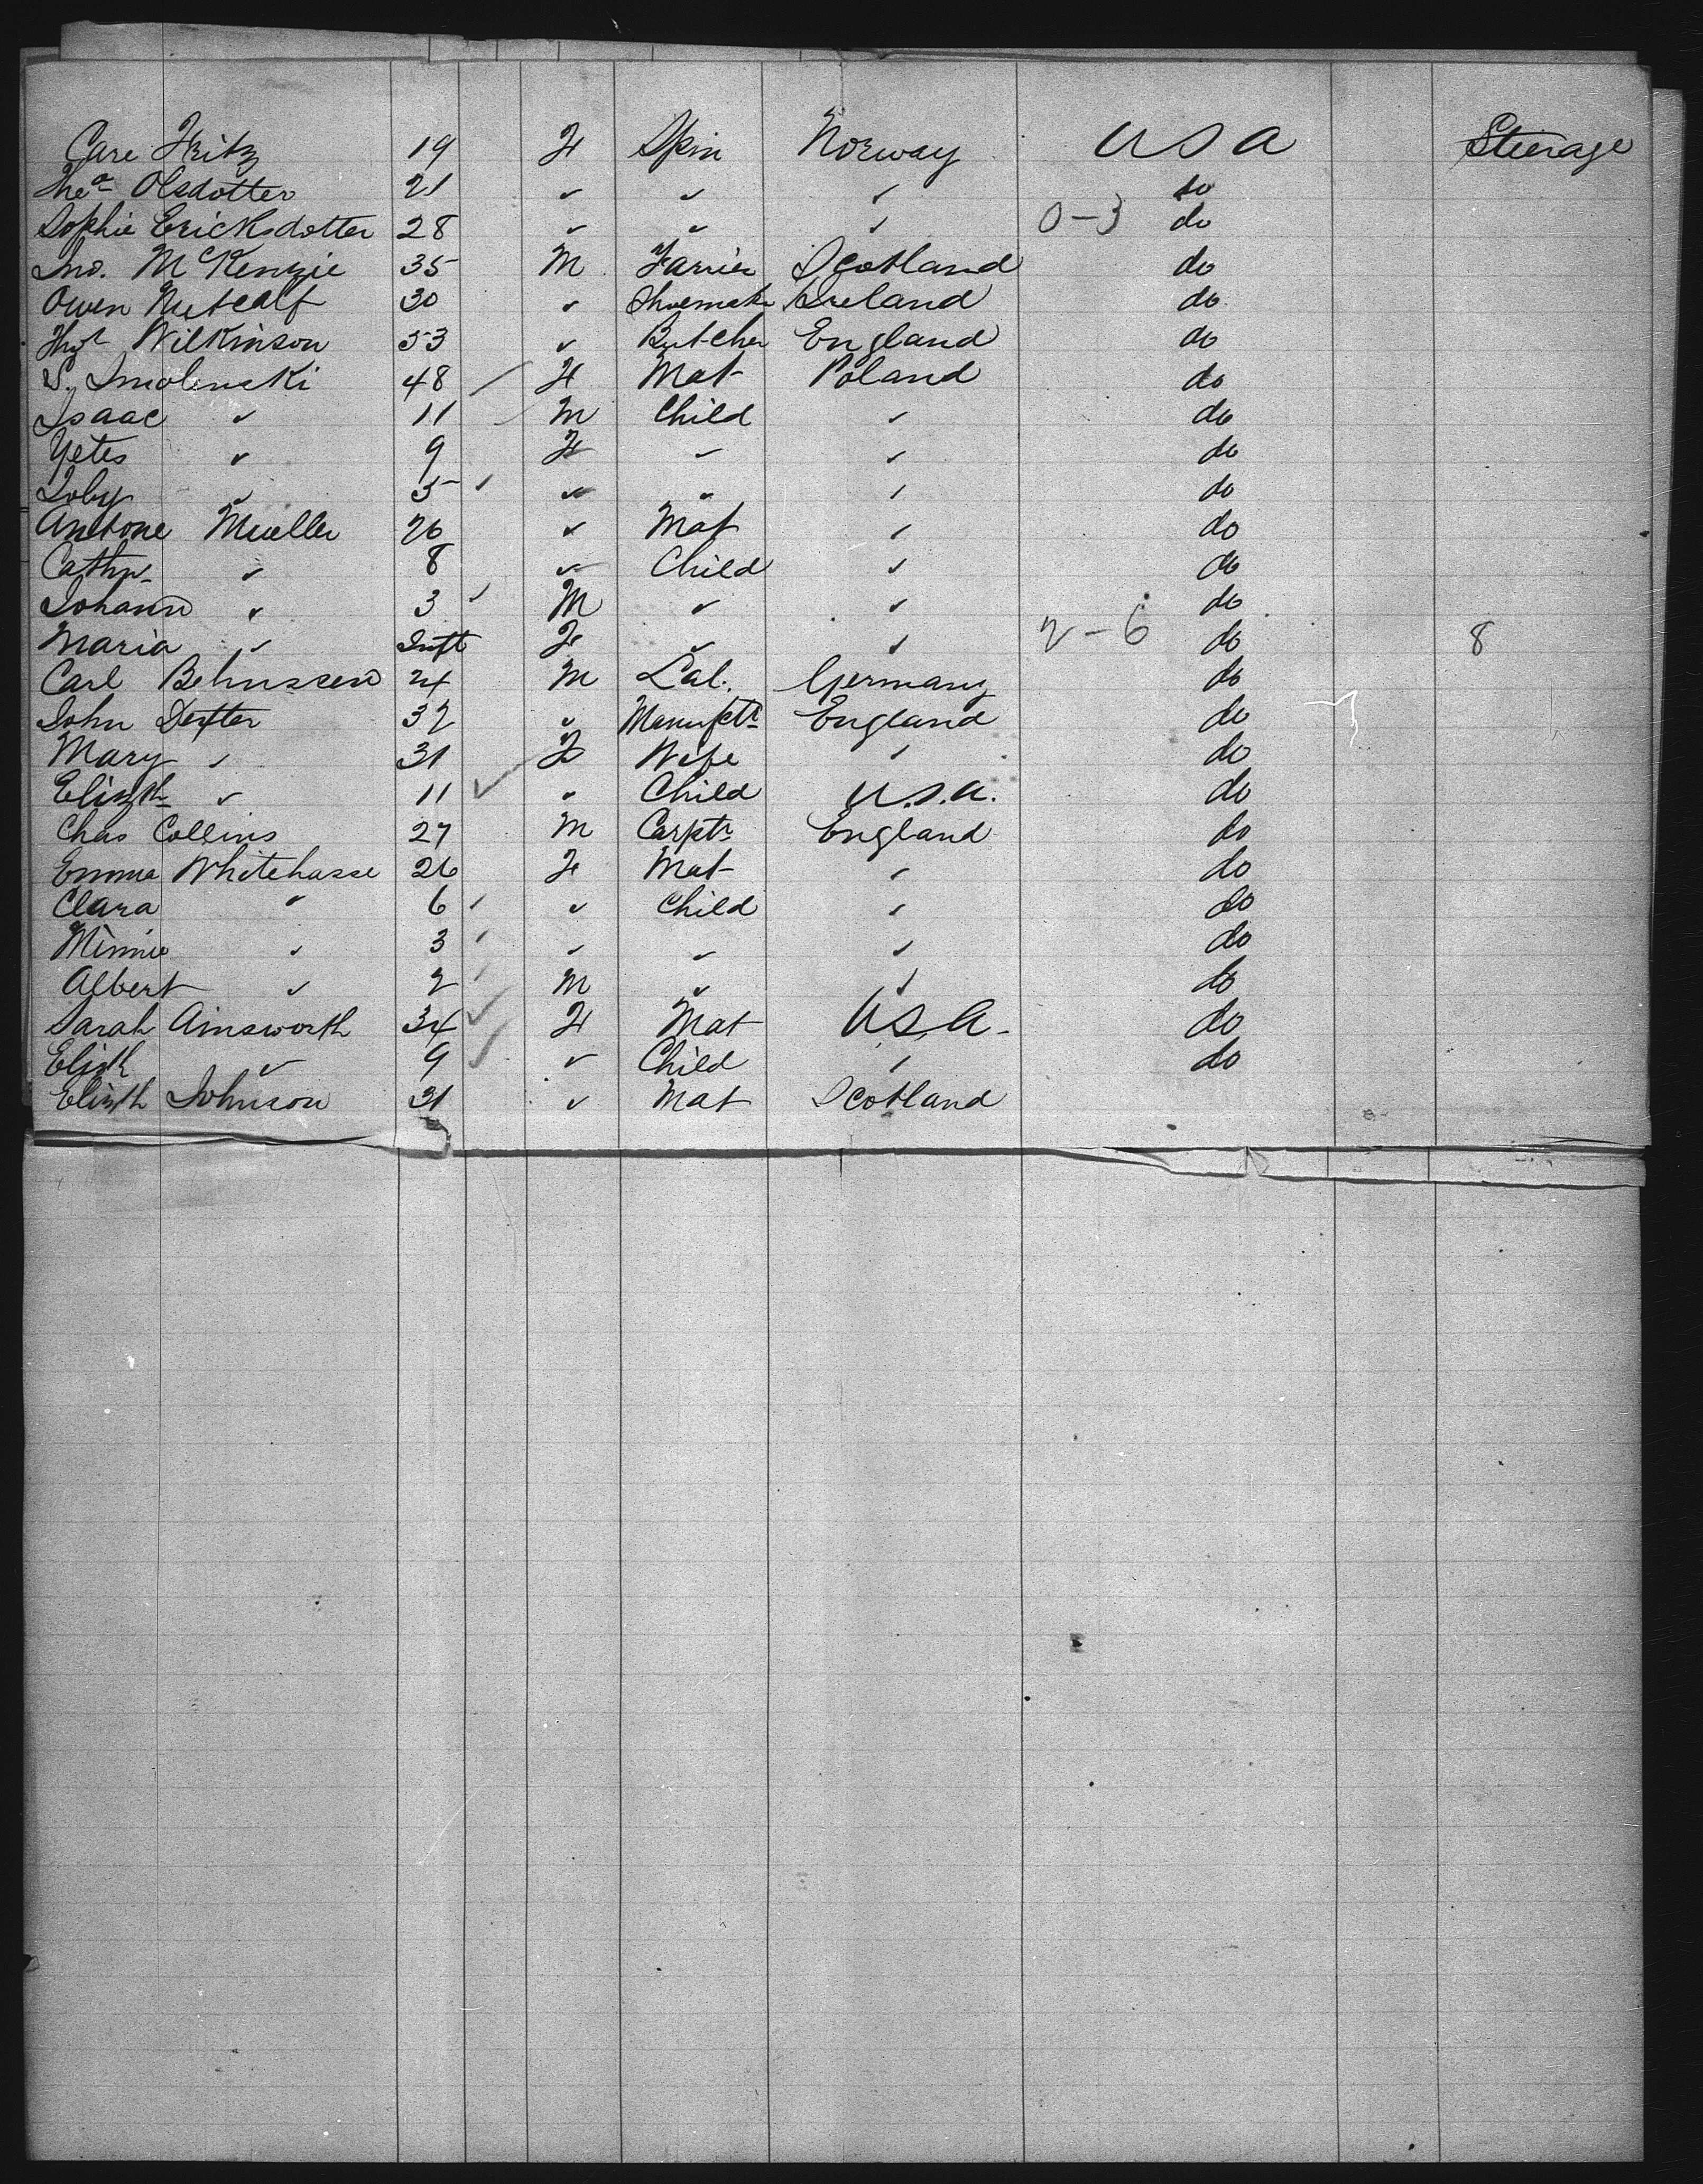 Care Fritz 19 F Spin Norway USA Steerage
Thea Olsdotter 21 " " " do
Sophie Ericksdotter 28 " " " 0-3 do
Jno. McKenzie 35 M Farrier Scotland do
Owen Metcalf 30 " Shoemakr Ireland do
Thos Wilkinson 53 " Butcher England do
S. Smolenski 48 F Mat Poland do
Isaac " 11 M Child " do
Yetes " 9 F " " do
Toby " 5 " " " do
Antone Mueller 26 " Mat " do
Cathn " 8 " Child " do
Johann " 3 M " " do
Maria " Inft F " " 2-6 do 8
Carl Behnssen 24 M Lab. Germany do
John Dexter 32 " Manufctr England do
Mary " 31 F Wife " do
Elizth " 11 " Child U.S.A. do
Chas Collins 27 M Carptr England do
Emma Whitehasse 26 F Mat " do
Clara " 6 " Child " do
Minnie " 3 " " " do
Albert " 2 M " " do
Sarah Ainsworth 34 F Mat USA do
Elizth " 9 " Child " do
Elizth Johnson 31 " Mat Scotland